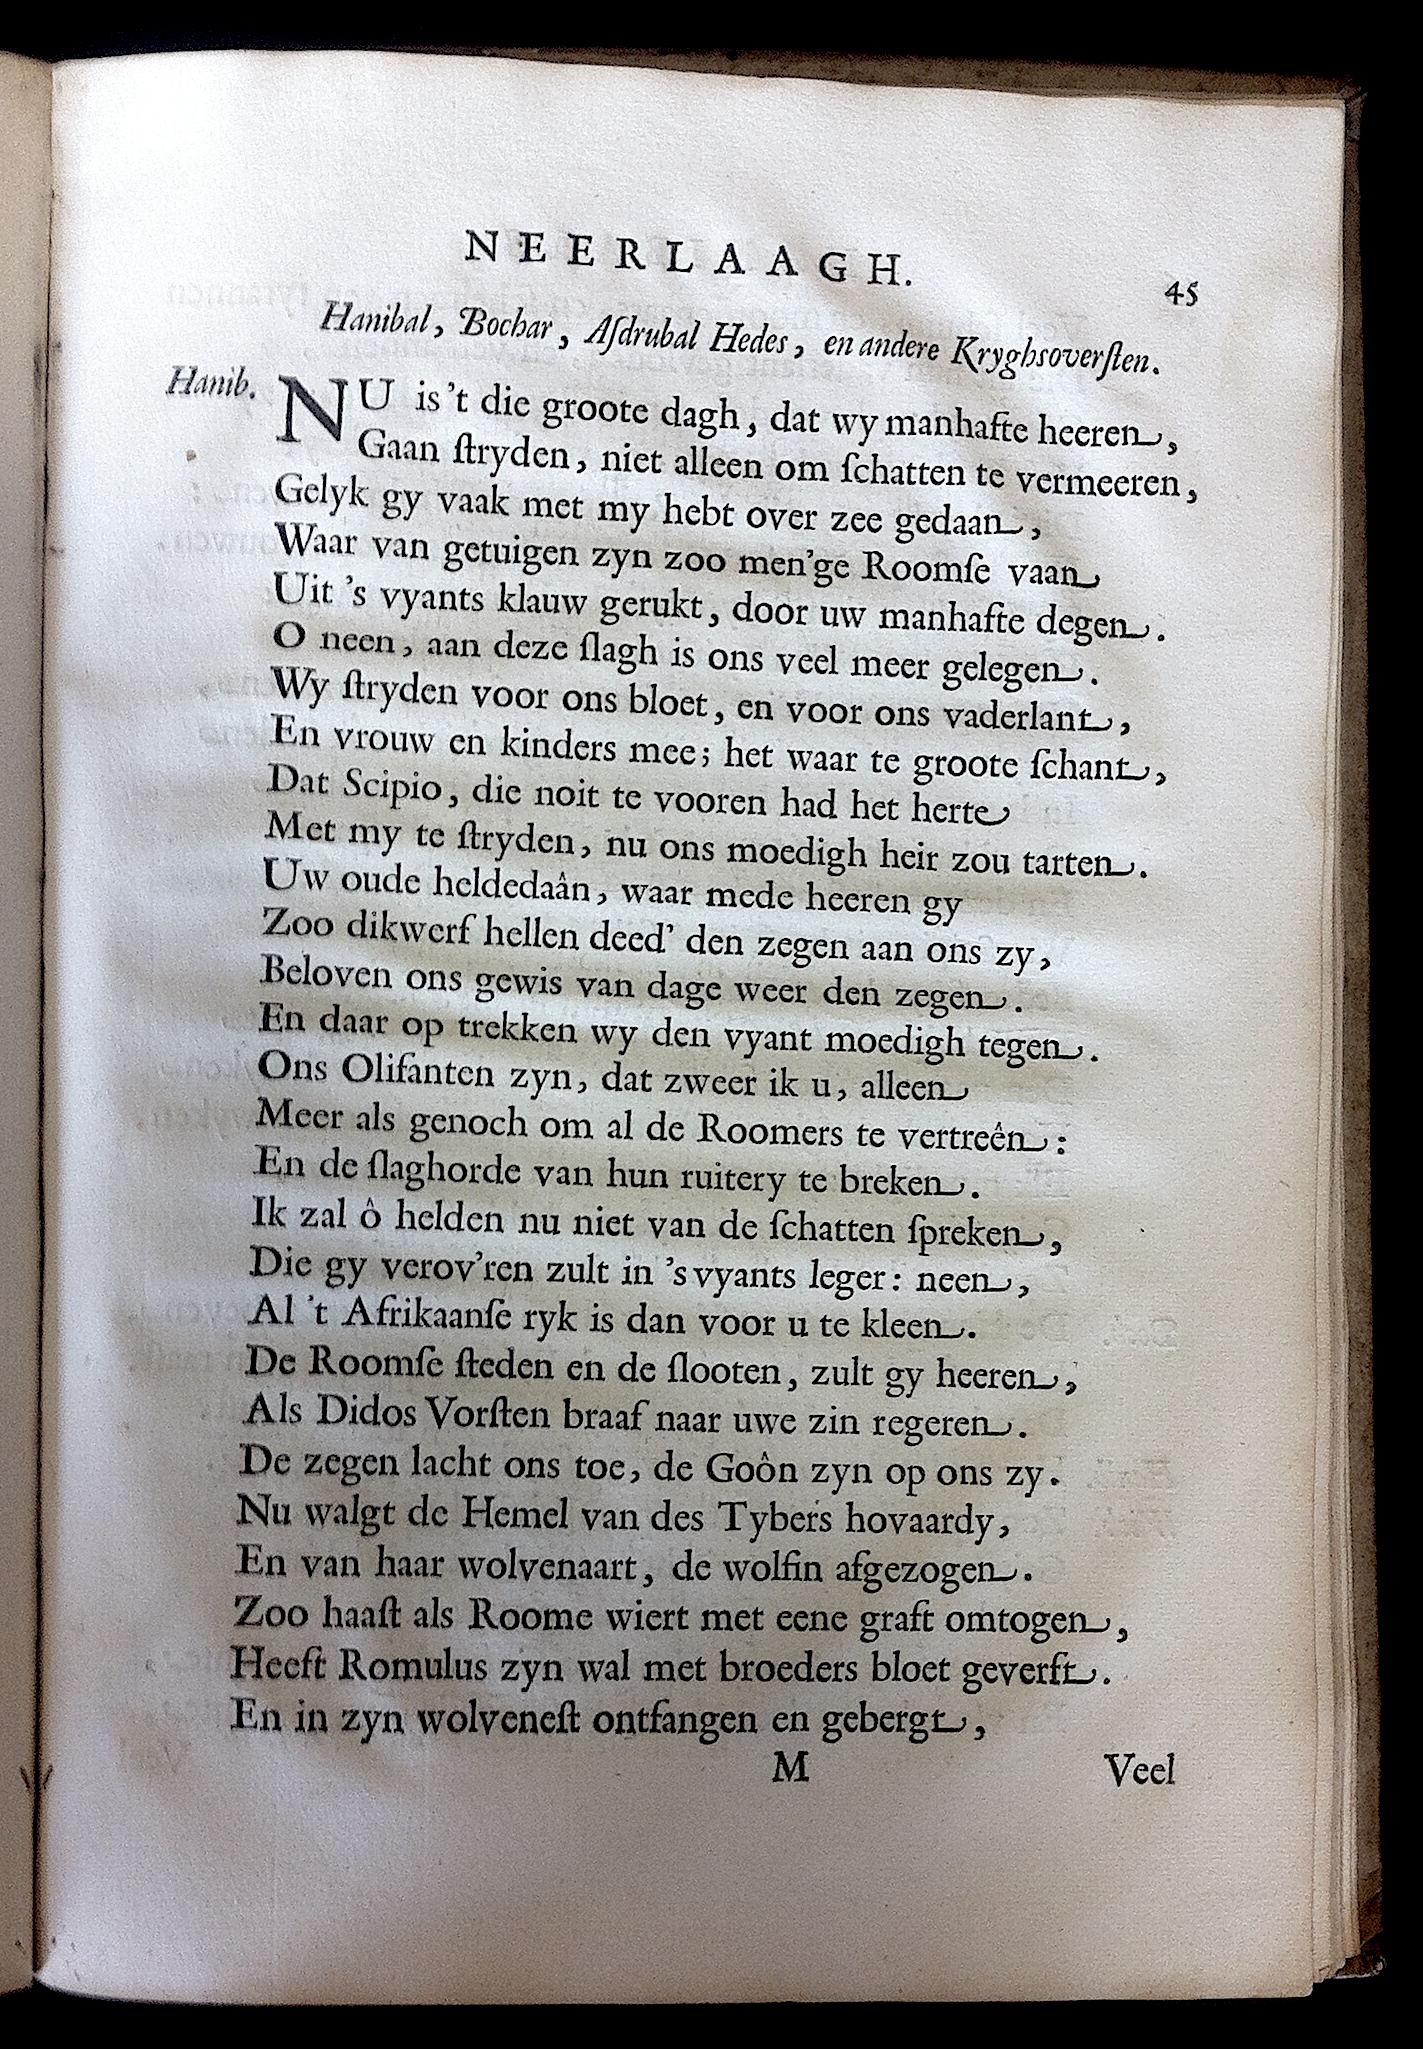 NEERLAAGH.
45
Hanibal, Bochar, Aſdrubal Hedes, en andere Kryghsoverſten.
Hanib. NU is 't die groote dagh, dat wy manhafte heeren,
Gaan ſtryden, niet alleen om ſchatten te vermeeren,
Gelyk gy vaak met my hebt over zee gedaan,
Waar van getuigen zyn zoo men'ge Roomſe vaan
Uit 's vyants klauw gerukt, door uw manhafte degen.
O neen, aan deze ſlagh is ons veel meer gelegen.
Wy ſtryden voor ons bloet, en voor ons vaderlant,
En vrouw en kinders mee; het waar te groote ſchant,
Dat Scipio, die noit te vooren had het herte
Met my te ſtryden, nu ons moedigh heir zou tarten.
Uw oude heldedaân, waar mede heeren gy
Zoo dikwerf hellen deed' den zegen aan ons zy,
Beloven ons gewis van dage weer den zegen.
En daar op trekken wy den vyant moedigh tegen.
Ons Olifanten zyn, dat zweer ik u, alleen
Meer als genoch om al de Roomers te vertreên:
En de ſlaghorde van hun ruitery te breken.
Ik zal ô helden nu niet van de ſchatten ſpreken,
Die gy verov'ren zult in 's vyants leger: neen,
Al 't Afrikaanſe ryk is dan voor u te kleen.
De Roomſe ſteden en de ſlooten, zult gy heeren,
Als Didos Vorſten braaf naar uwe zin regeren.
De zegen lacht ons toe, de Goôn zyn op ons zy.
Nu walgt de Hemel van des Tybers hovaardy,
En van haar wolvenaart, de wolfin afgezogen.
Zoo haaſt als Roome wiert met eene graft omtogen,
Heeft Romulus zyn wal met broeders bloet geverft.
En in zyn wolveneſt ontfangen en gebergt,
M
Veel